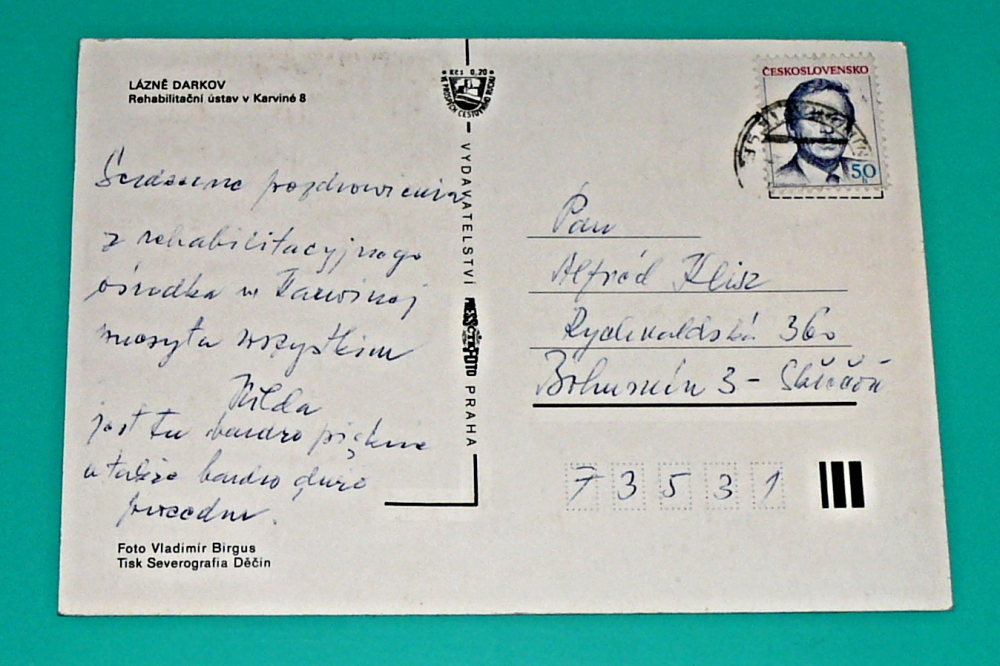 LÁZNĚ DARKOV
Rehabilitační ústav v Karviné 8
Serdeczne pozdrowienia
z rehabilitacyjnego
ośrodka w Karwinej
wszystkim
Hilda
jest tu bardzo pięknie
a także bardzo dużo
Foto Vladimír Birgus
Tisk Severografia Děčín
Kčs 0,20
VE PROSPĚCH CESTOVNÍHO RUCHU
VYDAVATELSTVÍ PRESSFOTO PRAHA
ČESKOSLOVENSKO
50
h
Pan
Alfréd Klisz
Rychvaldská 360
Bohumín 3 - Skřečoň
73531